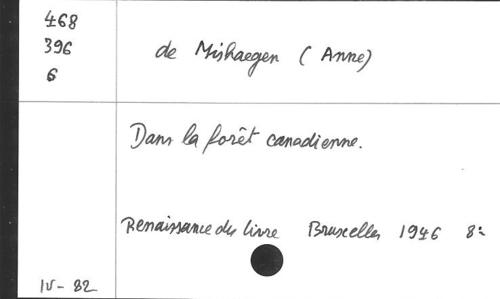 468
396
6
de Mishaegen (Anne)
Dans la forêt canadienne.
Renaissance du livre Bruxelles 1946 8:
IV-82